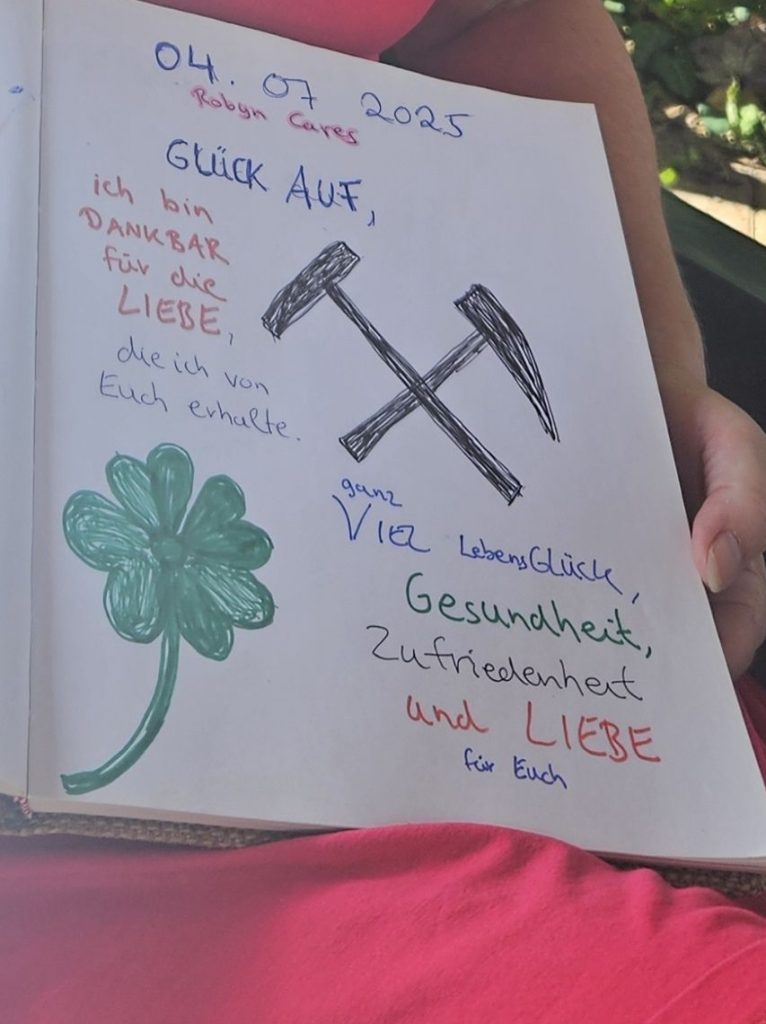 04. 07 2025
Robyn Cares
GLÜCK AUF,
ich bin
DANKBAR
für die
LIEBE,
die ich von
Euch erhalte.
ganz
VIEL LebensGLÜCK,
Gesundheit,
Zufriedenheit
und LIEBE
für Euch